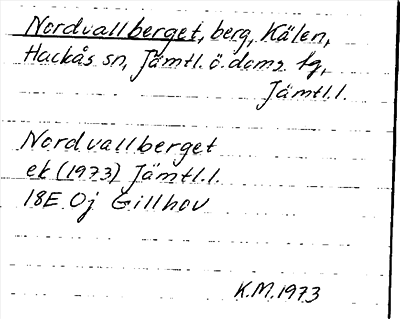 Nordvallberget, berg, Kälen,
Hackås sn, Jämtl. ö. doms. tg,
Jämtl.l.
Nordvallberget
ek (1973) Jämtl.l.
18E 0j Gillhov
K.M.1973